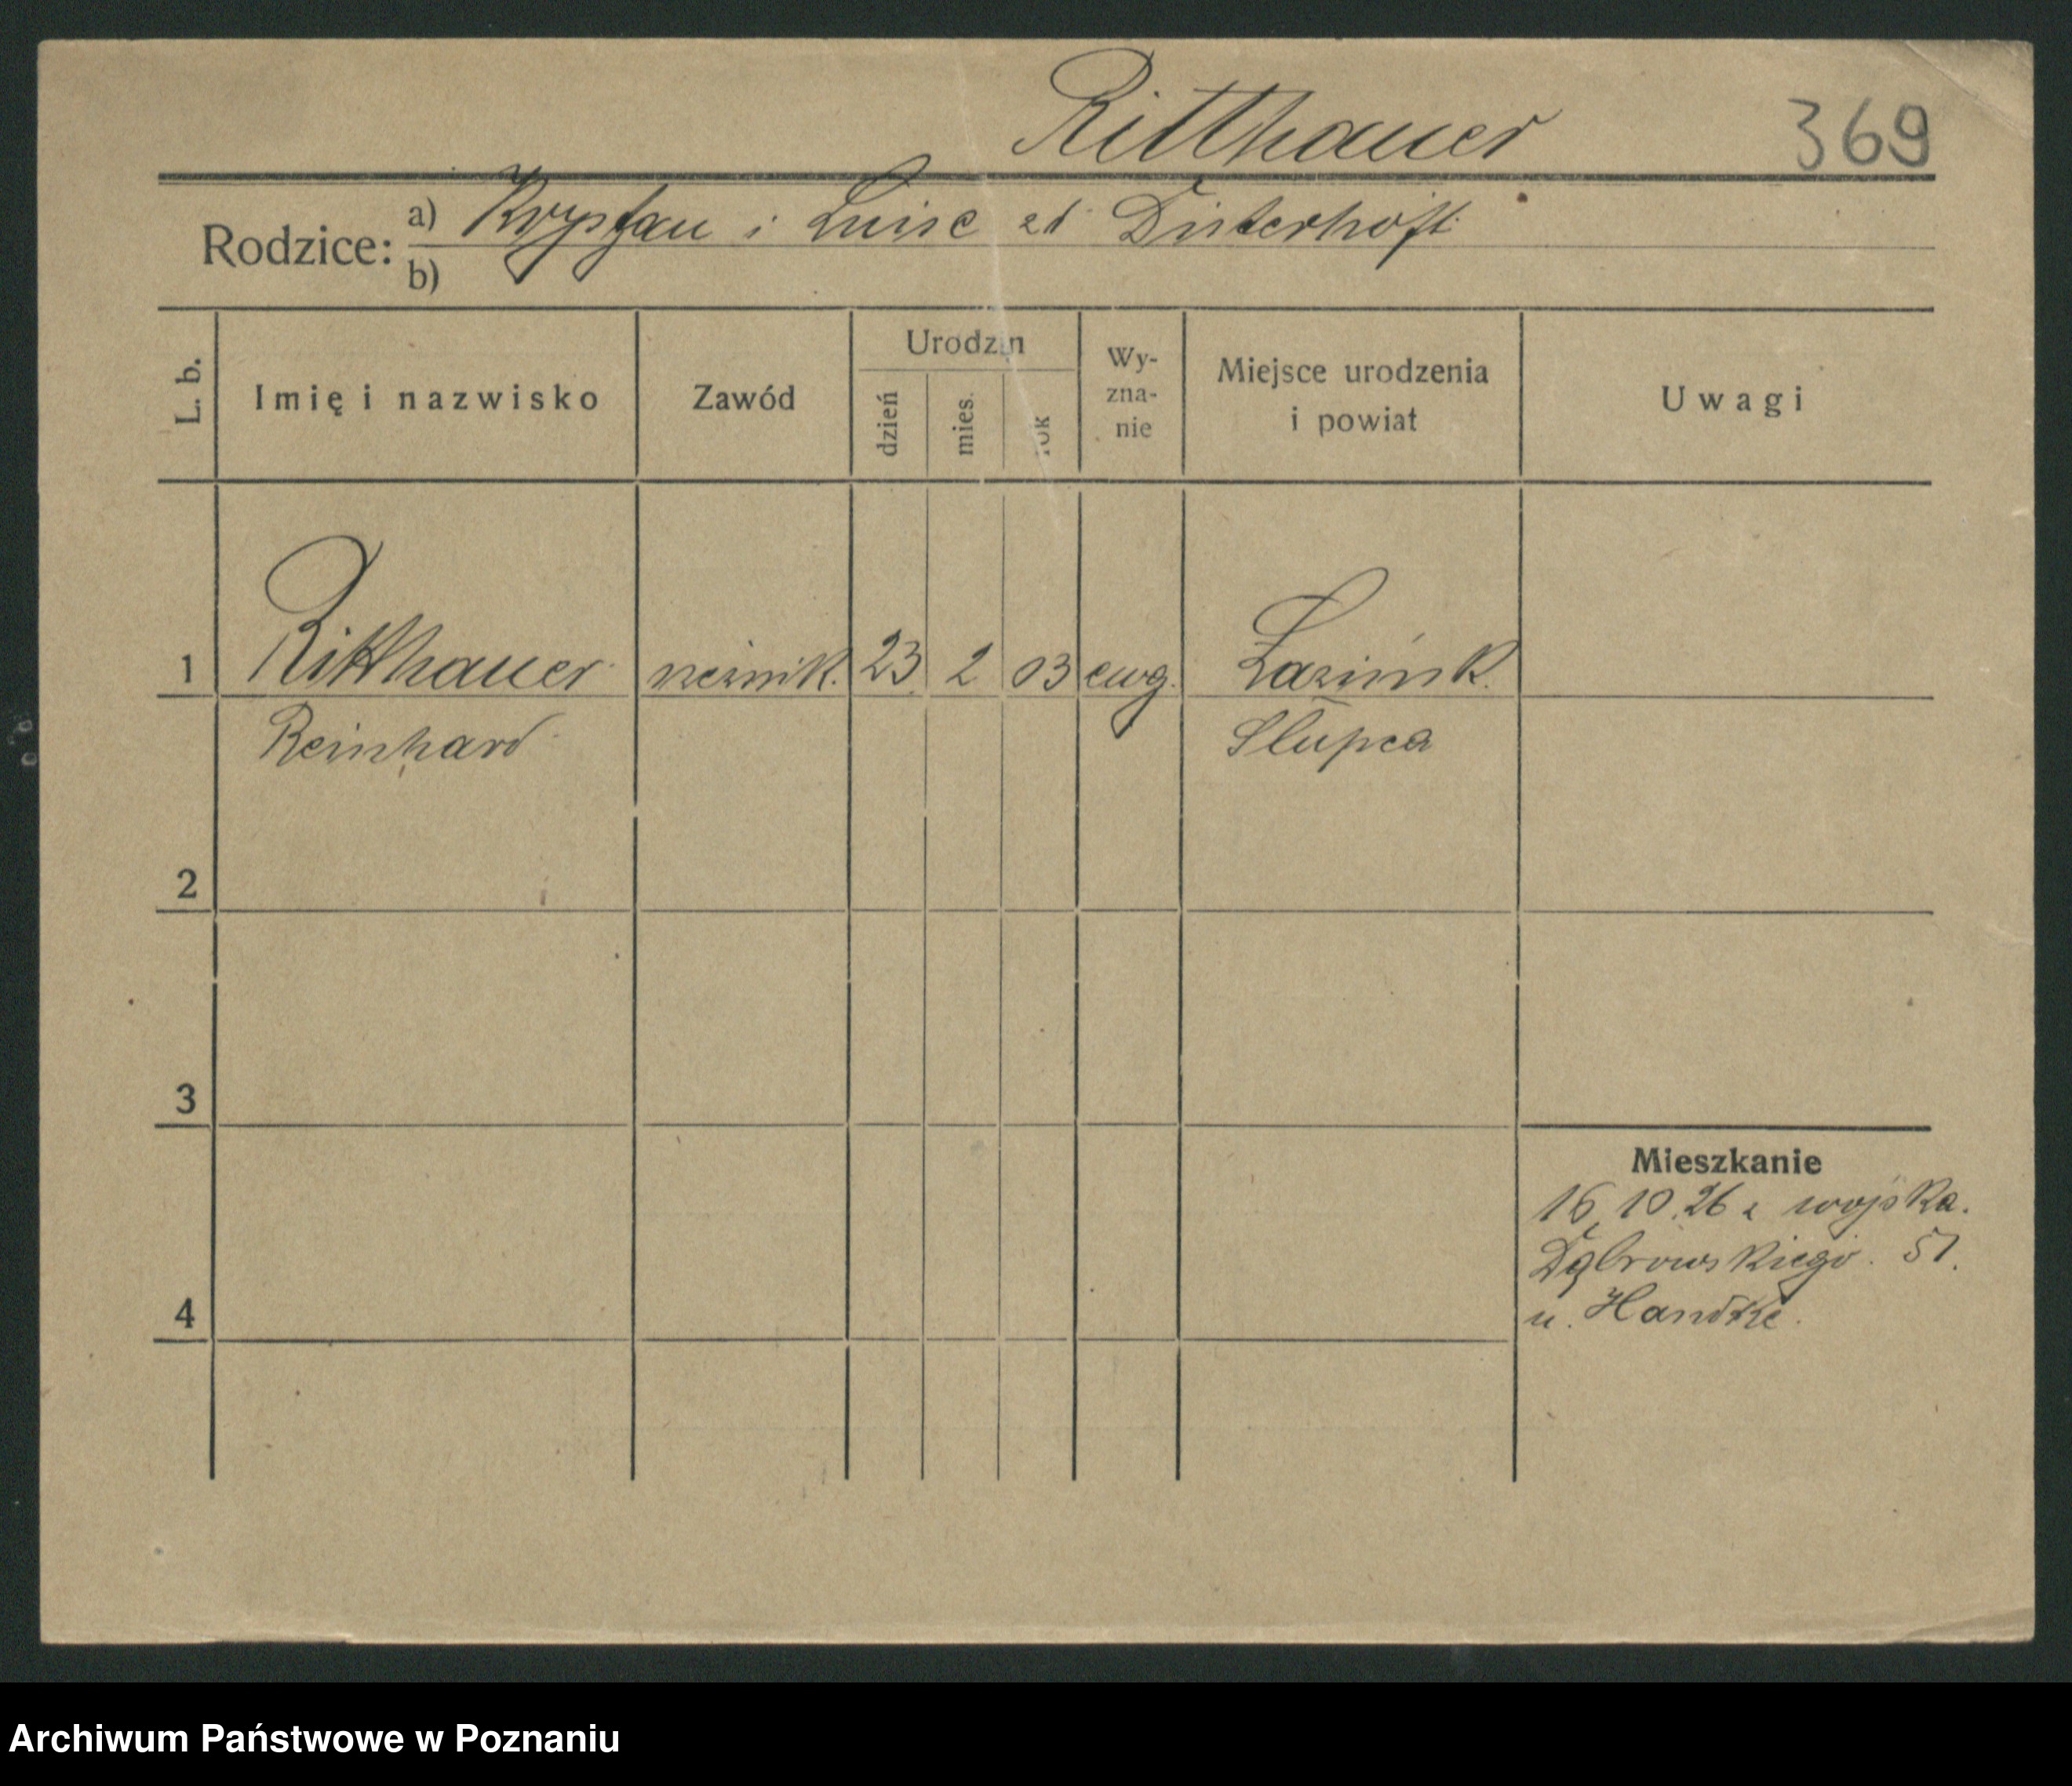 Ritthauer 369
Rodzice: a) i Luise zd Disterhöft
b)
L. b. Imię i nazwisko Zawód Urodzin dzień mies. rok Wy-zna-nie Miejsce urodzenia i powiat Uwagi
1 Ritthauer rzeźnik. 23 2 03 ewg. Łazińsk.
Reinhard Słupca
2
3
Mieszkanie
16,10.26 z wojska.
Dąbrowskiego. 51.
4 u. Handtke.
Archiwum Państwowe w Poznaniu